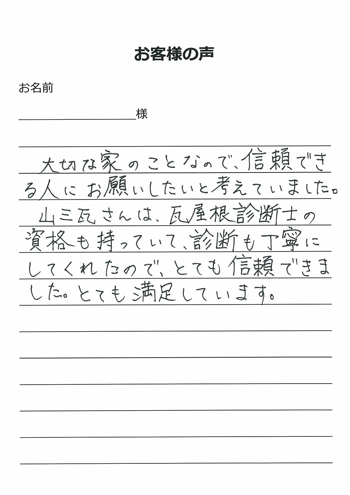 お客様の声
お名前
様
大切な家のことなので、信頼でき
る人にお願いしたいと考えていました。
山三瓦さんは、瓦屋根診断士の
資格も持っていて、診断も丁寧に
してくれたので、とても信頼できま
した。とても満足しています。